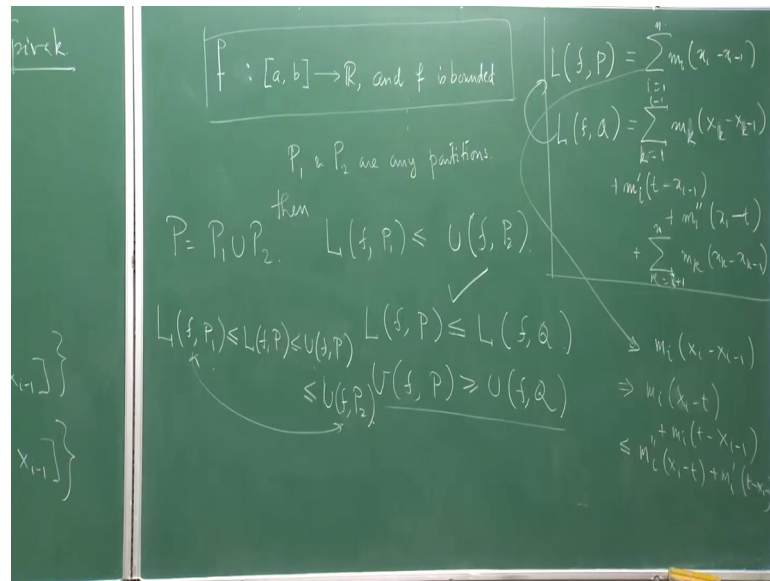 pivak
f : [a, b] → R, and f is bounded
P₁ & P₂ are any partitions.
then
P = P₁ ∪ P₂. L(f, P₁) ≤ U(f, P₂).
L(f, P₁) ≤ L(f, P) ≤ U(f, P)
≤ U(f, P₂)
L(f, P) ≤ L(f, Q)
U(f, P) ≥ U(f, Q)
x_{i-1}]}
x_{i-1}]}
L(f, P) = ∑_{i=1}^{n} m_i (x_i - x_{i-1})
L(f, Q) = ∑_{k=1}^{i-1} m_k (x_k - x_{k-1})
+ m_i' (t - x_{i-1})
+ m_i'' (x_i - t)
+ ∑_{k=i+1}^{n} m_k (x_k - x_{k-1})
m_i (x_i - x_{i-1})
⇒ m_i (x_i - t)
+ m_i (t - x_{i-1})
≤ m_i'' (x_i - t) + m_i' (t - x_{i-1}